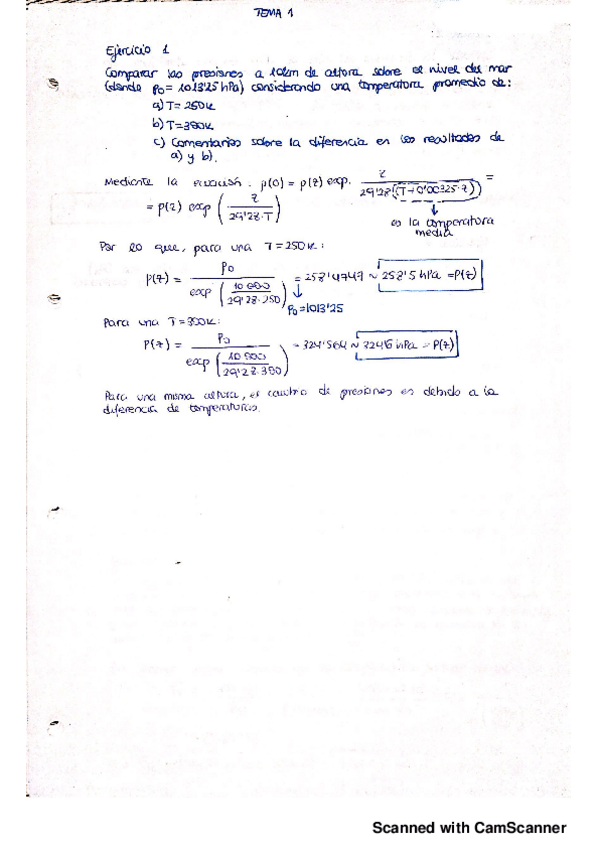 TEMA 1
Ejercicio 1
Comparar las presiones a 10km de altura sobre el nivel del mar
(donde p0 = 1013'25 hPa) considerando una temperatura promedio de:
a) T = 250K
b) T = 300K
c) Comentarios sobre la diferencia en los resultados de
a) y b).
Mediante la ecuación: p(0) = p(z) exp. z / 29'28 ((T+0'00325·z)) =
= p(z) exp ( z / 29'28·T )
es la temperatura
media
Por lo que, para una T = 250K:
P(z) = P0 / exp ( 10000 / 29'28·250 ) = 258'4747 ~ 258'5 hPa = P(z)
P0 = 1013'25
Para una T = 300K:
P(z) = P0 / exp ( 10000 / 29'28·300 ) = 324'564 ~ 324'6 hPa = P(z)
Para una misma altura, el cambio de presiones es debido a la
diferencia de temperaturas.
Scanned with CamScanner